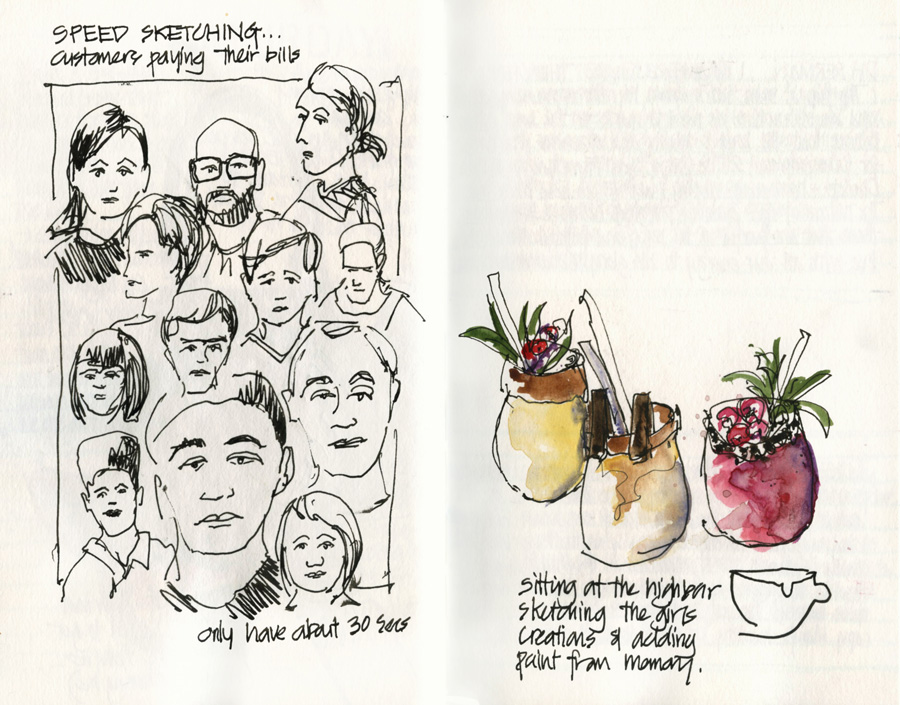 SPEED SKETCHING...
customers paying their bills
only have about 30 secs
sitting at the highbar
sketching the girls
creations & adding
paint from memory.